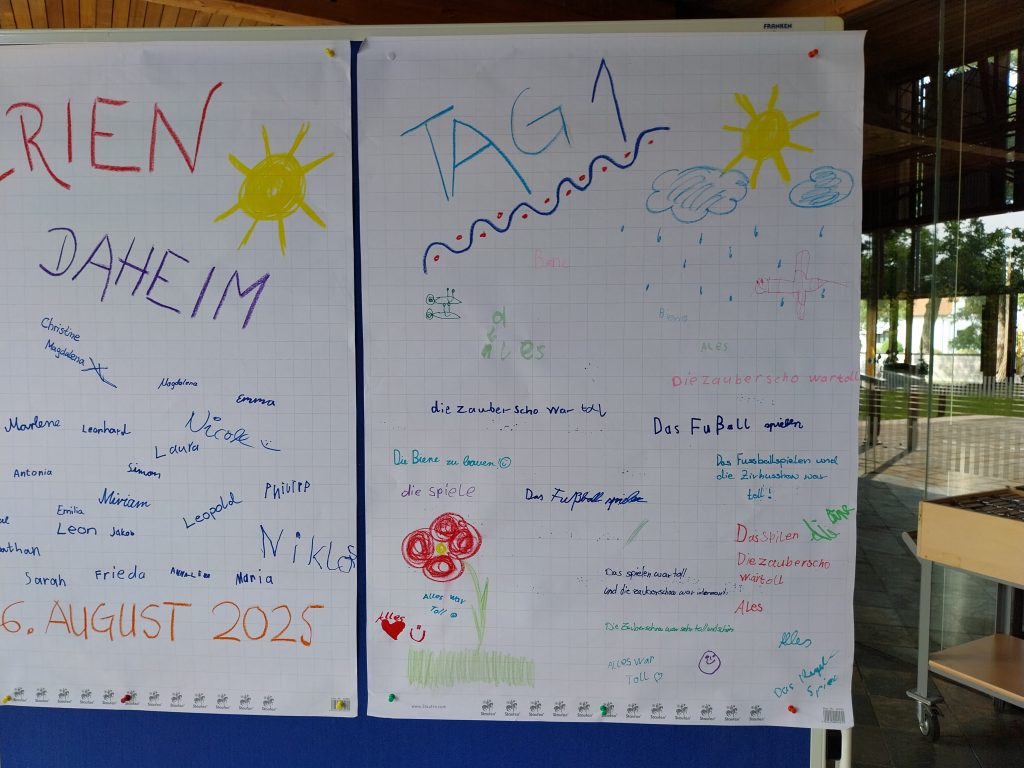 FRANKEN
ERIEN
DAHEIM
Christine
Magdalena
Magdalena
Emma
Marlene
Leonhard
Nicole
Laura
Antonia
Simon
Emilia
Miriam
Leopold
Philipp
Leon
Jakob
Niklas
Sarah
Frieda
Maria
6. AUGUST 2025
TAG 1
Biene
Biene
ales
ALES
Die zauberscho war toll
die zauberscho war toll
Das Fußball spielen
Die Biene zu bauen
Das Fussballspielen und
die Zirkusshow war
toll!
die spiele
Das Fußball spielen
die
Das spilen
Die zauberscho
war toll
Ales
Das spielen war toll
und die zauberschow war
Die Zauberschow war sehr toll und schön
Alles war
Toll
Alles
ALLES WAR
TOLL
Alles
Das Kegel-
Spiel
www.Staufen.com
Staufen